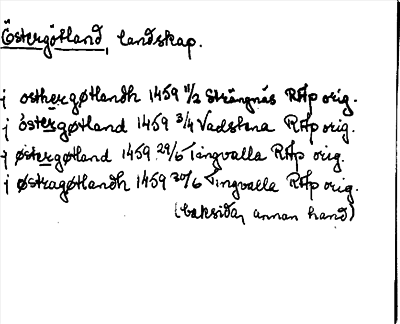 Östergötland, landskap.
j osthergøtlandh 1459 11/2 Strängnäs RAp orig.
j østergøtland 1459 3/4 Vadstena RAp orig.
j østergøtland 1459 29/6 Tingvalla RAp orig.
j østragøtlandh 1459 30/6 Tingvalla RAp orig.
(baksida, annan hand)